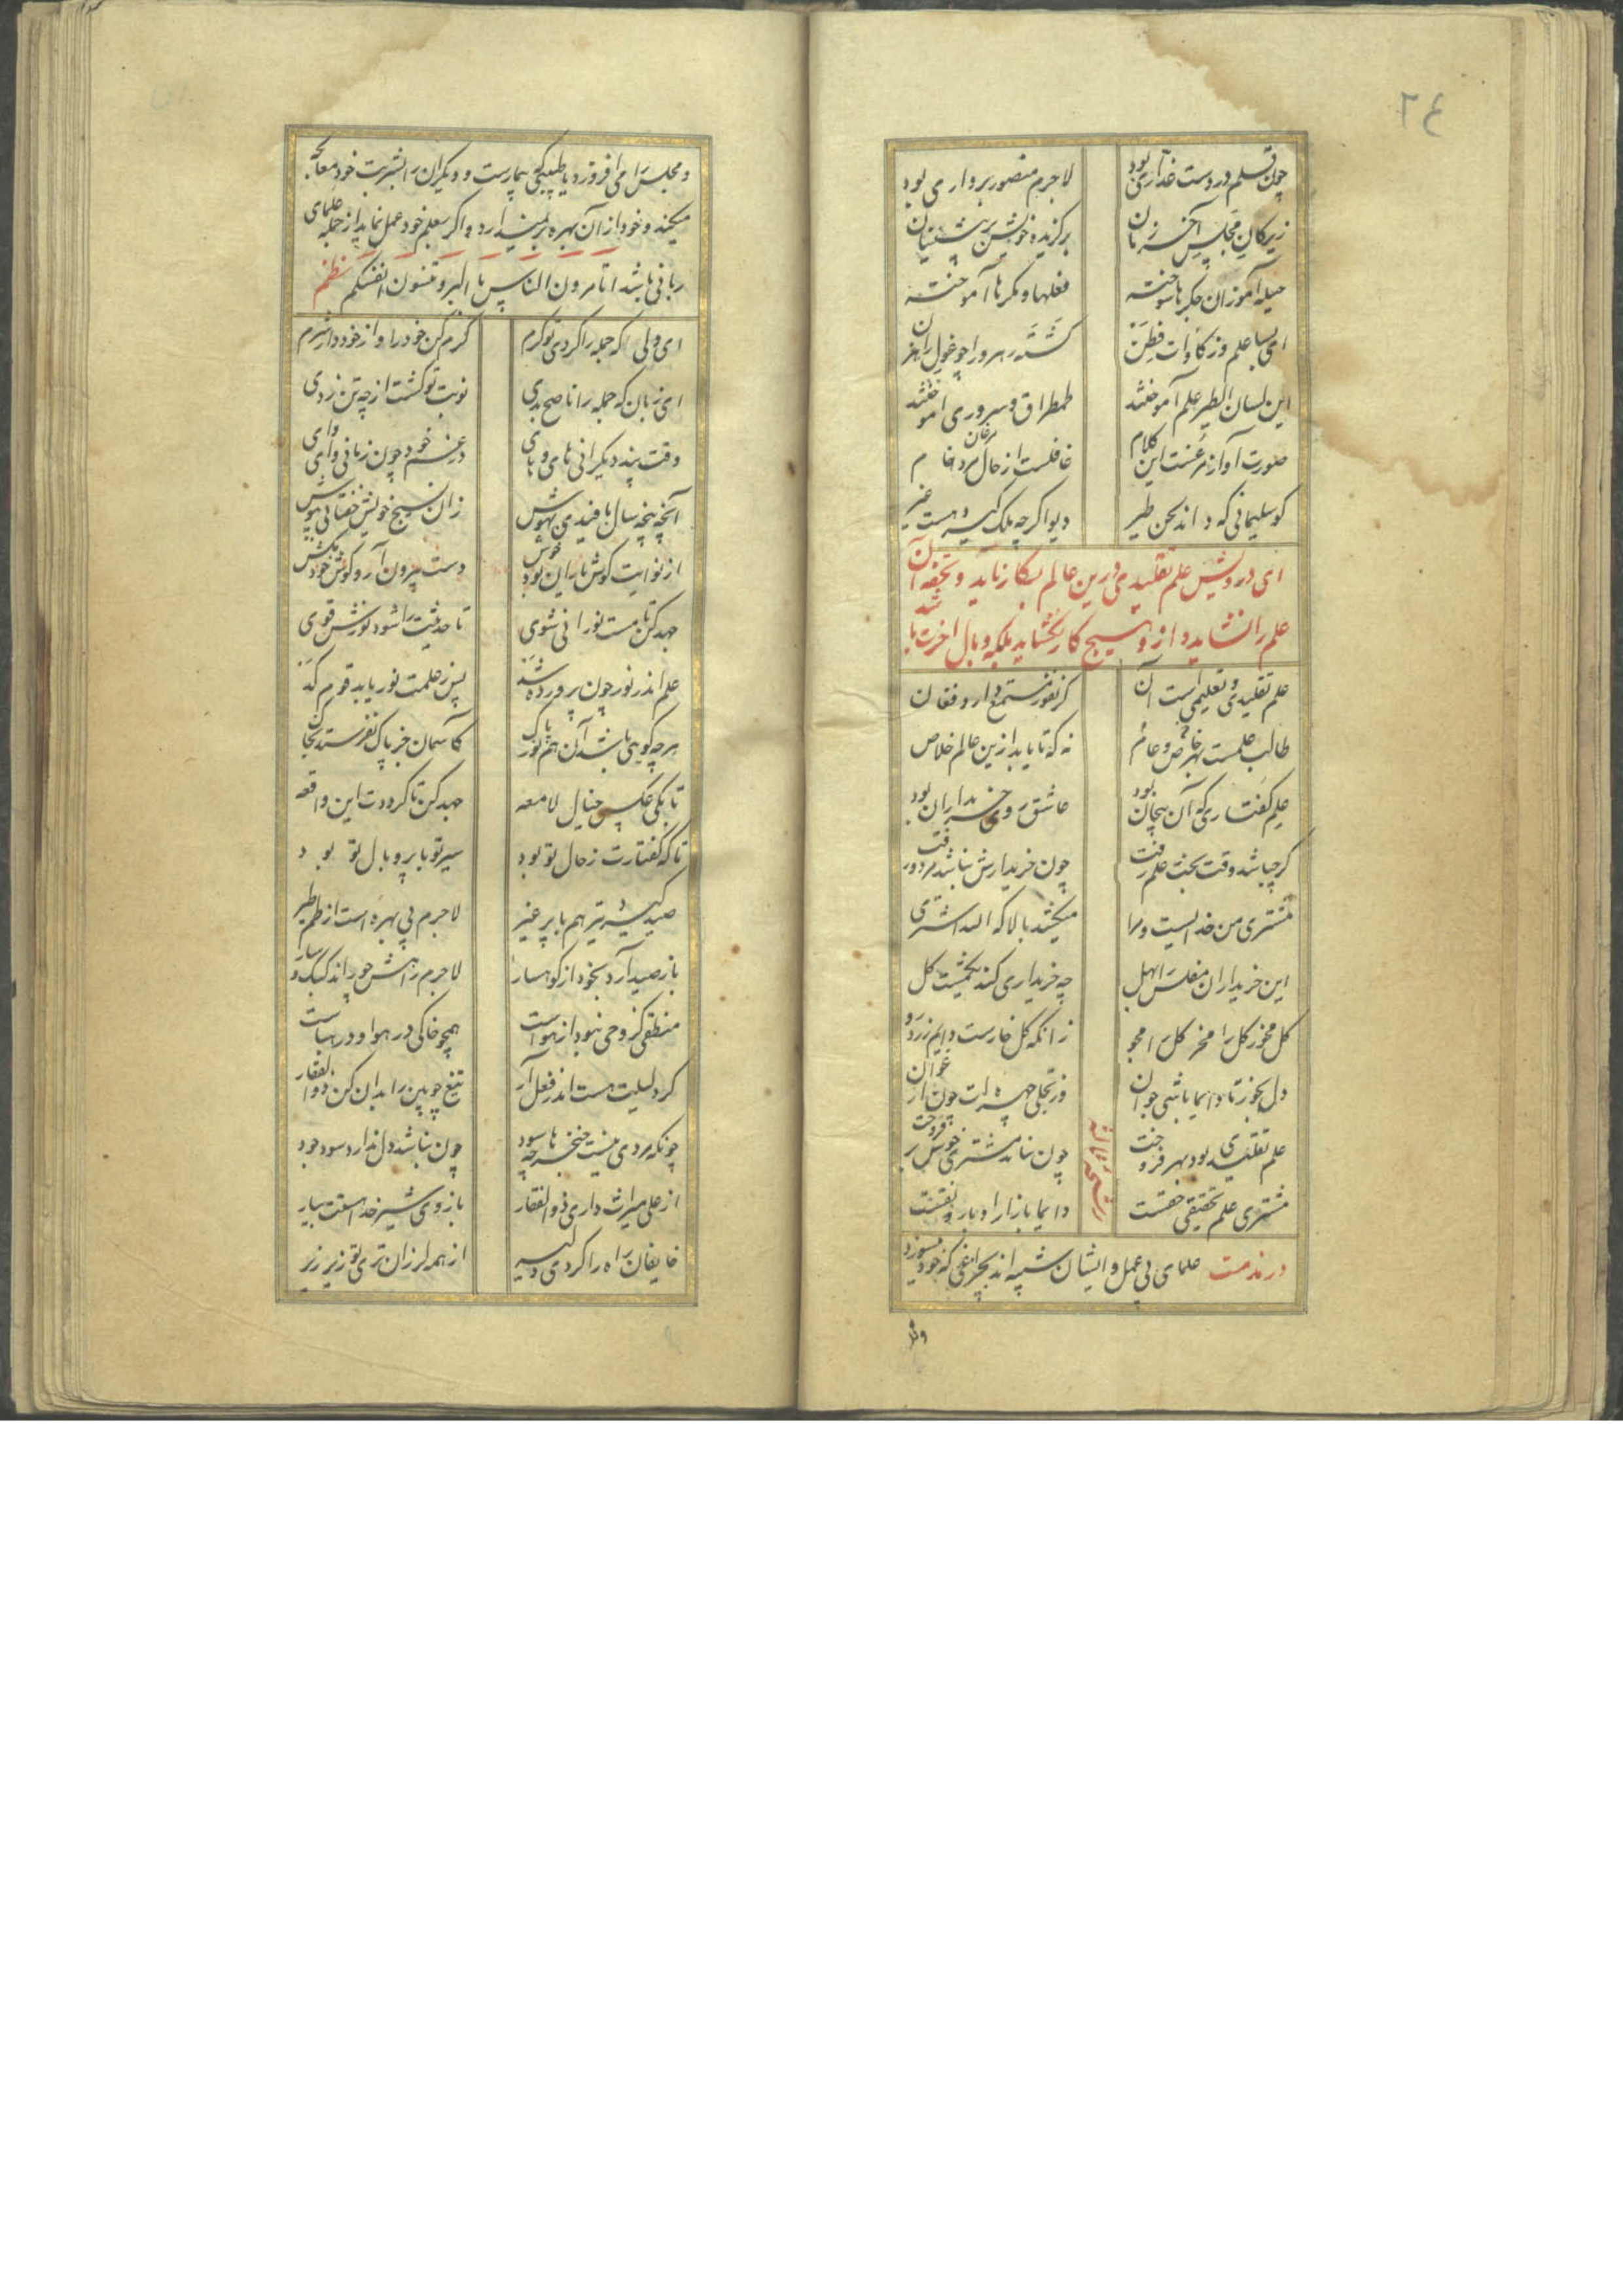 ٤٦
چون قلم در دست غداری بود لاجرم منصور بر داری بود
زیرکان مجلس آخر زمان برگزیده خویش بر پیشینیان
حیله آموزان جگرها سوخته فعلها و مکرها آموخته
ای بسا علم و زکاوات فطن گشته رهرو را چو غول راهزن
این لسان الطیر علم آموختند طمطراق و سروری اموختند
صورت آواز مرغست این کلام غافلست از حال مرغان مرد خام
کو سلیمانی که داند لحن طیر دیو اگرچه ملک گیرد هست غیر
ای درویش علم تقلیدی درین عالم بکار نآید و تحفه آن
علم را نشاید و از و هیچ کار نگشاید بلکه وبال اخرت باشد
علم تقلیدی و تعلیمی است آن کز نفور مستمع دارد فغان
طالب علمست بهر خاص و عام نه که تا یابد ازین عالم خلاص
علم گفتاری که آن بیجان بود عاشق روی خریداران بود
گرچه باشد وقت بحث علم زفت چون خریدارش نباشد مرد و رفت
مشتری من خدایست و مرا میکشد بالا که الله اشتری
این خریداران مفلس را بهل چه خریداری کند یکمشت گل
گل مخور گل را مخر گل را مجو زانکه گل خوارست دایم زرد رو
دل بخور تا دایما باشی جوان وز تجلی چهره ات چون ارغوان
علم تقلیدی بود بهر فروخت چون بیابد مشتری خوش بر فروخت
مشتری علم تحقیقی حقست دایما بازار او با رونقست
در مذمت علمای بی عمل و ایشان شبیه اند بچراغی که خود میسوزد
و مجلس را می افروزد یا طبیبی که بیمارست و دیگران را بشربت خود معالجه
میکند و خود از آن بهره بر نمیدارد و اگر بعلم خود عمل نماید از جمله علمای
ربانی باشد اتامرون الناس با البر و تنسون انفسکم نظم
ای ولی که جمله را کردی تو گرم گرم کن خود را و از خود دار شرم
ای زبان که جمله را ناصح بدی نوبت تو گشت از چه تن زدی
وقت پند دیگرانی های و های در غم خود چون زنانی وای وای
آنچه پنجه سال بافیدی بهوش زان نسیج خویشتن خفتانی بپوش
از نوایت گوش یاران بود خوش دست بیرون آر و گوش خود بکش
جهد کن تا مست نورانی شوی تا حدیثت را شود نورش قوی
علم اندر نور چون پرورده شد پس ز علمت نور یابد قوم لد
هر چه گویی باشد آن هم نور پاک کاسمان جز پاک نفرستد بخاک
تا بکی عکس خیال لامعه جهد کن تا گرددت این واقعه
تا که گفتارت ز حال تو بود سیر تو با پر و بال تو بود
صید گیرد تیر هم با پر غیر لاجرم بی بهره است از طعم طیر
باز صید آرد بخود از کوهسار لاجرم شاهش خوراند کبک و سار
منطقی کز وحی نبود از هواست همچو خاکی در هوا و در هباست
گر دلیلت هست اندر فعل آر تیغ چوبین را بدان کن ذوالفقار
چونکه مردی نیست خنجرها چه سود چون نباشد دل ندارد سود خود
از علی میراث داری ذوالفقار بازوی شیر خدا هستت بیار
خایفان راه را کردی دلیر از همه لرزان تری تو زیر زیر